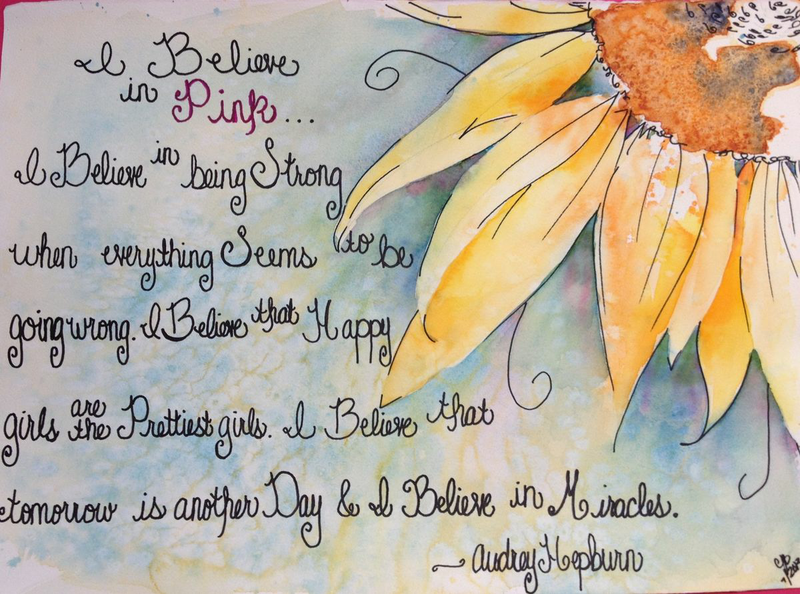 I Believe
in Pink...
I Believe in being Strong
when everything Seems to be
going wrong. I Believe that Happy
girls are the Prettiest girls. I Believe that
tomorrow is another Day & I Believe in Miracles.
~ Audrey Hepburn